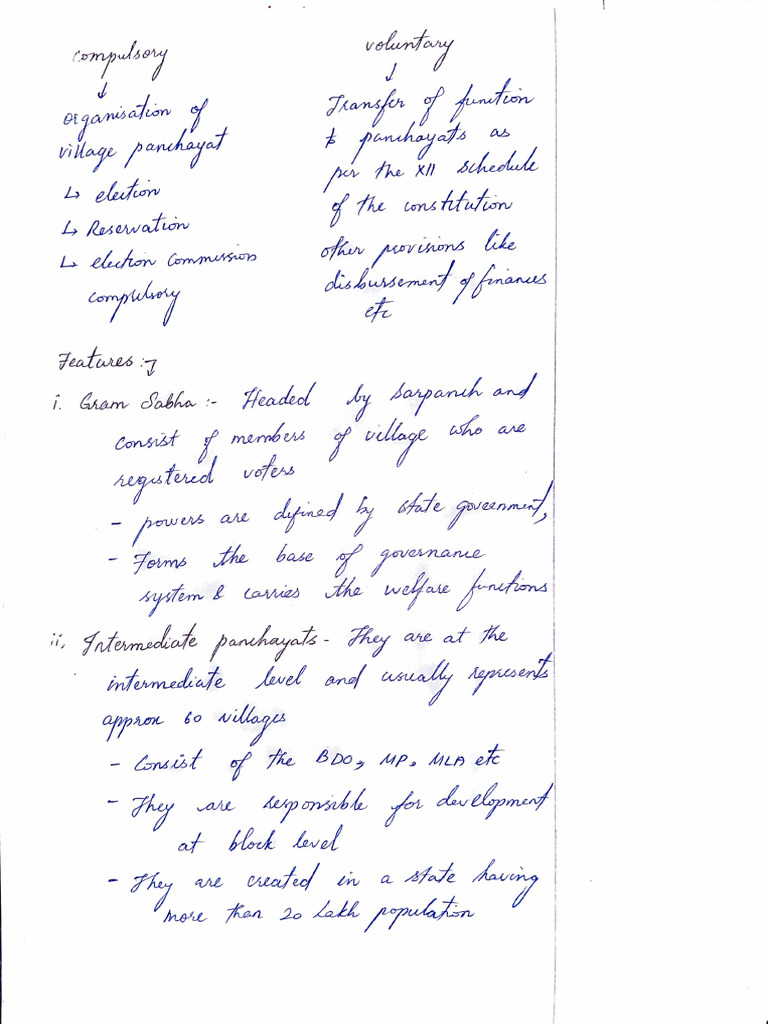 compulsory
↓
organisation of
village panchayat
↳ election
↳ Reservation
↳ election commission
compulsory
voluntary
↓
Transfer of function
to panchayats as
per the XII schedule
of the constitution
other provisions like
disbursement of finances
etc
Features :→
i. Gram Sabha :- Headed by sarpanch and
consist of members of village who are
registered voters
- powers are defined by state government,
- Forms the base of governance
system & carries the welfare functions
ii, Intermediate panchayats - They are at the
intermediate level and usually represents
approx 60 villages
- Consist of the BDO, MP, MLA etc
- They are responsible for development
at block level
- They are created in a state having
more than 20 Lakh population